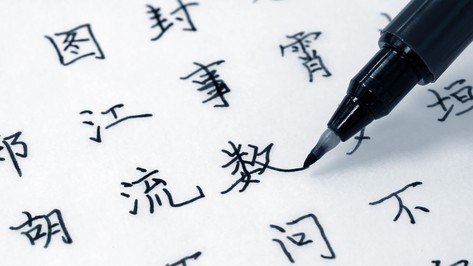 图封
江事霄
胡流数垣
问不